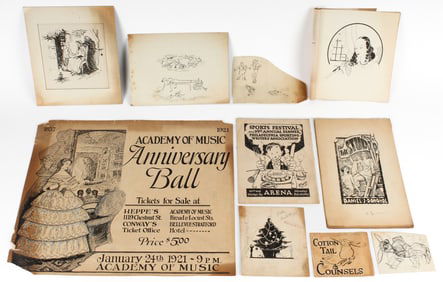 1921
ACADEMY OF MUSIC
Anniversary
Ball
Tickets for Sale at
HEPPE'S
1119 Chestnut St.
CONWAY'S
Ticket Office
ACADEMY OF MUSIC
Broad & Locust Sts.
BELLEVUE STRATFORD
Hotel
Price $5.00
January 24th 1921 - 9 P.M.
ACADEMY OF MUSIC
SPORTS FESTIVAL
ANNUAL DINNER
PHILADELPHIA SPORTING
WRITERS ASSOCIATION
ARENA
COTTON
TAIL
COUNSELS